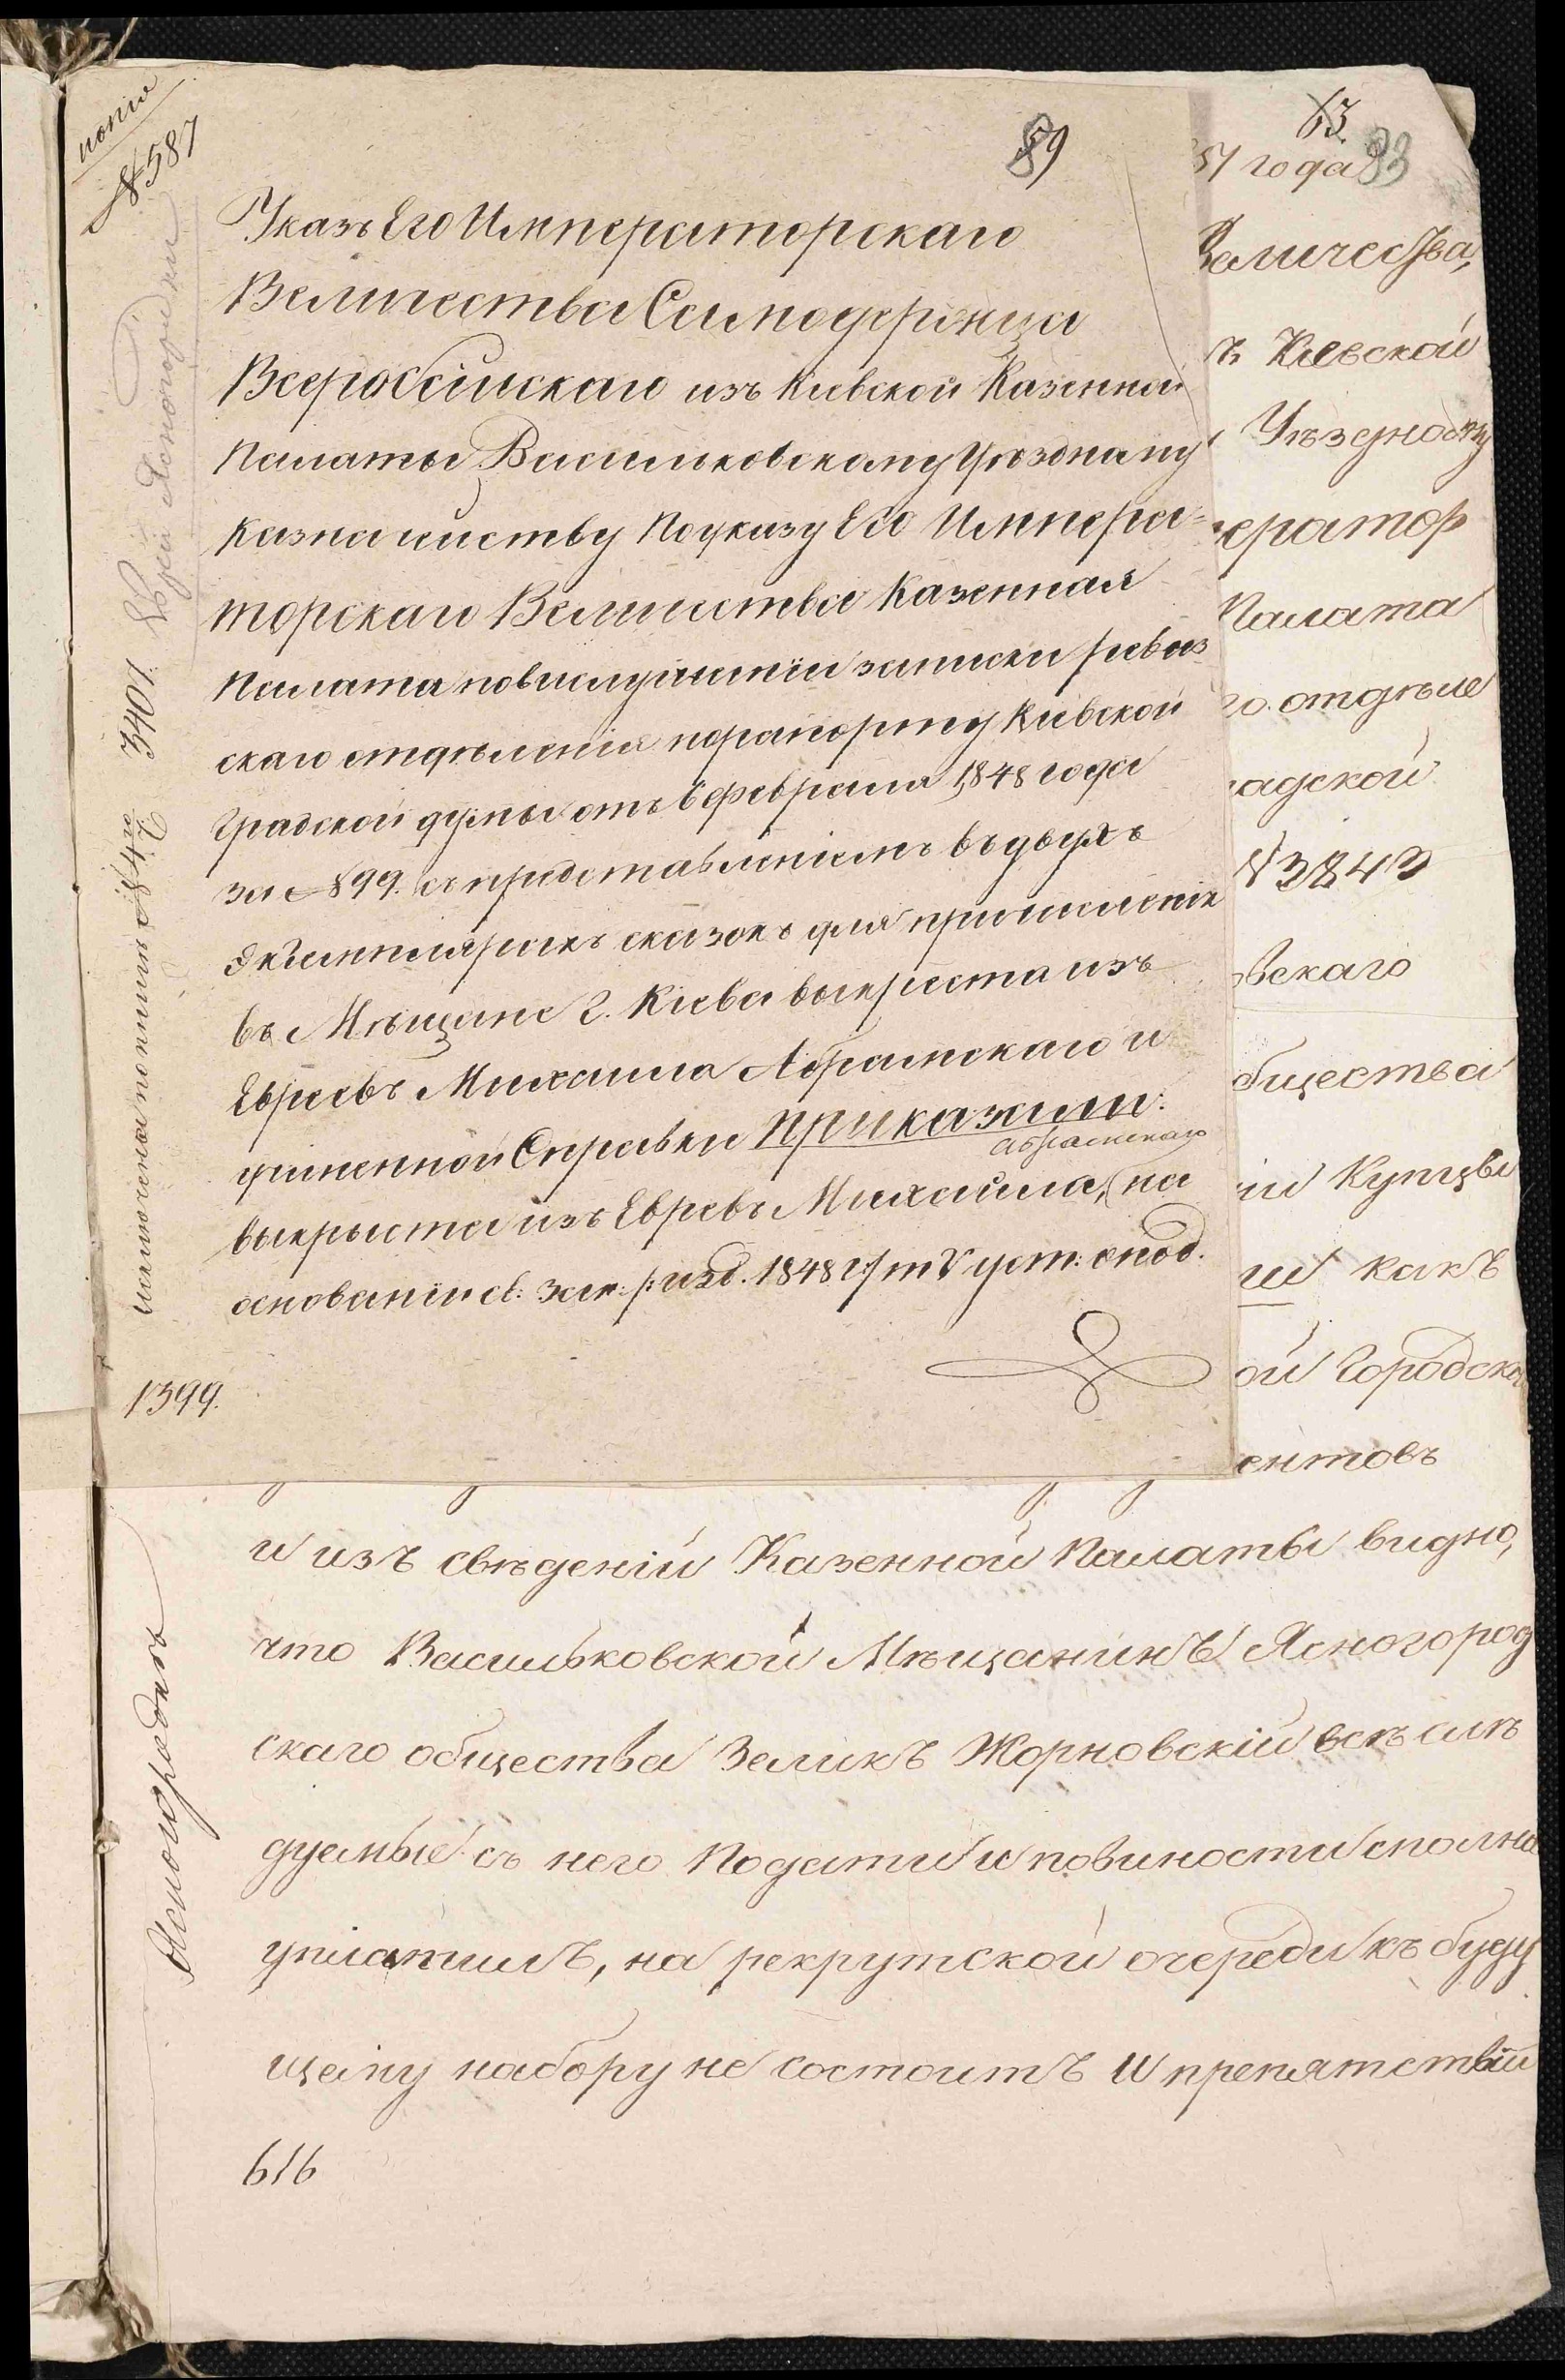 копія
№ 587
89
Указъ Его Императорскаго
Величества Самодержца
Всероссійскаго изъ Кіевской Казенной
Палаты Васильковскому Уѣздному
Казначейству По указу Его Импера-
торскаго Величества Казенная
Палата по выслушаніи записки ревиз
скаго отдѣленія по рапорту Кіевской
Градской думы отъ 6 февраля 1848 года
за № 99. съ представленіемъ въ двухъ
экземплярахъ сказокъ для причисленія
въ Мѣщане г. Кіева выкреста изъ
Евреевъ Михаила Абрамскаго и
учиненной Справки Приказали:
Абрамскаго
выкреста изъ Евреевъ Михаила, на
основаніи св: зак: /: изд. 1848 г:/ т V уст: о под.
1399.
3401.
Евреи Ясногородки
63.
83
51 года
Величества,
ъ Кіевской
Уѣздному
ератор
Палата
го отдѣле
адской
№ 3843
овскаго
общества
ій Купцы
ли какъ
ой Городско
ентовъ
и изъ свѣденій Казенной Палаты видно,
что Васильковской Мѣщанинъ Ясногород
скаго общества Зеликъ Жорновскій всѣ слѣ
дуемые съ него Подати и повиности сполна
уплатилъ, на рекрутской очереди къ буду
щему набору не состоитъ и препятствій
616
Ясногородкъ